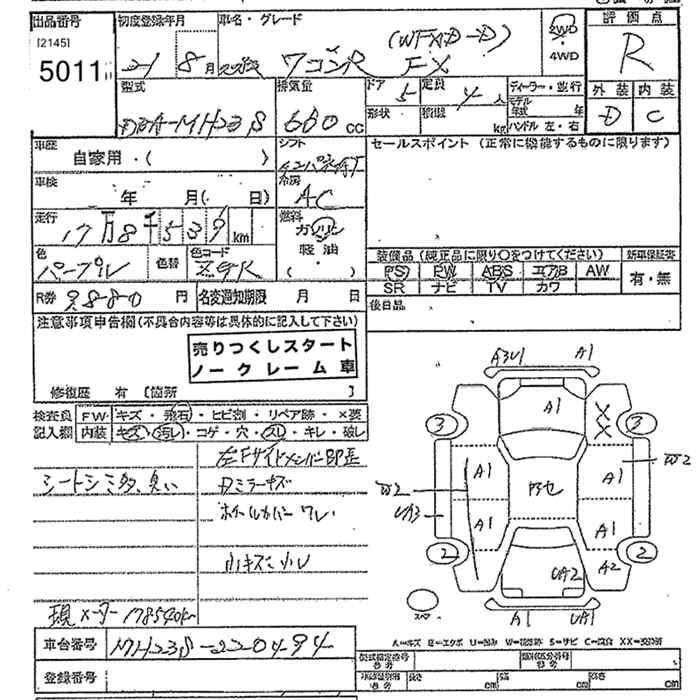 出品番号
初度登録年月
車名・グレード
評価点
[2145]
5011
21
8月
ワゴンR
FX
2WD
・
4WD
R
外装
内装
D
C
型式
DBA-MH23S
排気量
660
CC
ドア
5
定員
4人
形状
積載
kg
ディーラー・並行
モデル年式
年
ハンドル 左・右
車歴
自家用・( )
シフト
セールスポイント(正常に機能するものに限ります)
車検
年 月( 日)
冷房
AC
走行
17万8千539km
燃料
ガソリン
・
軽油
( )
色
パープル
色替
色コード
装備品(純正品に限り○をつけてください)
新車保証書
PS PW ABS エアB AW
SR ナビ TV カワ
有・無
R券
9880円
名変通知期限 月 日
後日品
注意事項申告欄(不具合内容等は具体的に記入して下さい)
売りつくしスタート
ノークレーム車
修復歴 有 [箇所 ]
検査員
記入欄
FW
キズ・飛石・ヒビ割・リペア跡・×要
内装
キズ・汚レ・コゲ・穴・スレ・キレ・破レ
左Fサイドメンバー部歪
シートシミ多、臭い
ドアミラーキズ
ホイールカバーワレ
小キズ・小凹
現メーター178540km
A3U1
A1
A1
X
X
3
3
W2
A1
A1
W2
UA3
A1
A1
2
2
UA2
A2
スペア
A1
UA1
A=キズ E=エクボ U=凹み W=補修跡 S=サビ C=腐食 XX=交換済
車台番号
MH23S-220494
登録番号
型式指定番号
類別区分番号
長さ
cm
幅
cm
高さ
cm